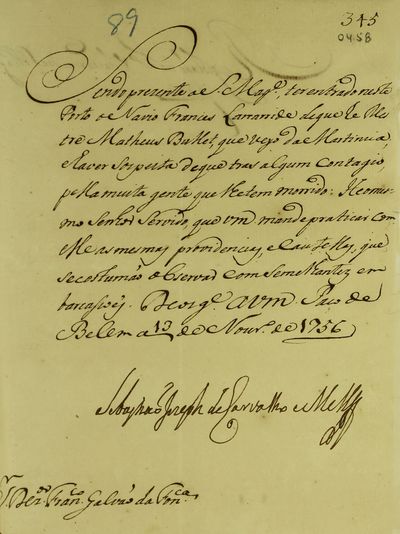 89
345
0458
Sendo prezente a S. Mag.e, ter entrado neste
Porto o Navio Frances de que he Mes-
tre Matheus Bullet, que veyo da Martinica,
e haver sospeita de que tras algum Contagio,
p.la muita gente que lhe tem morrido: He o mes-
mo Senhor Servido, que vm mande praticar com
elle as mesmas providencias, e cautellas, que
se costumão observar com semelhantes em-
barcasoes. Deos g.e a vm Paço de
Belem a 13 de Nov.ro de 1756
Sebastião Joseph de Carvalho e Mello
S.r D.ez.or Fran.co Galvão da Fon.ca